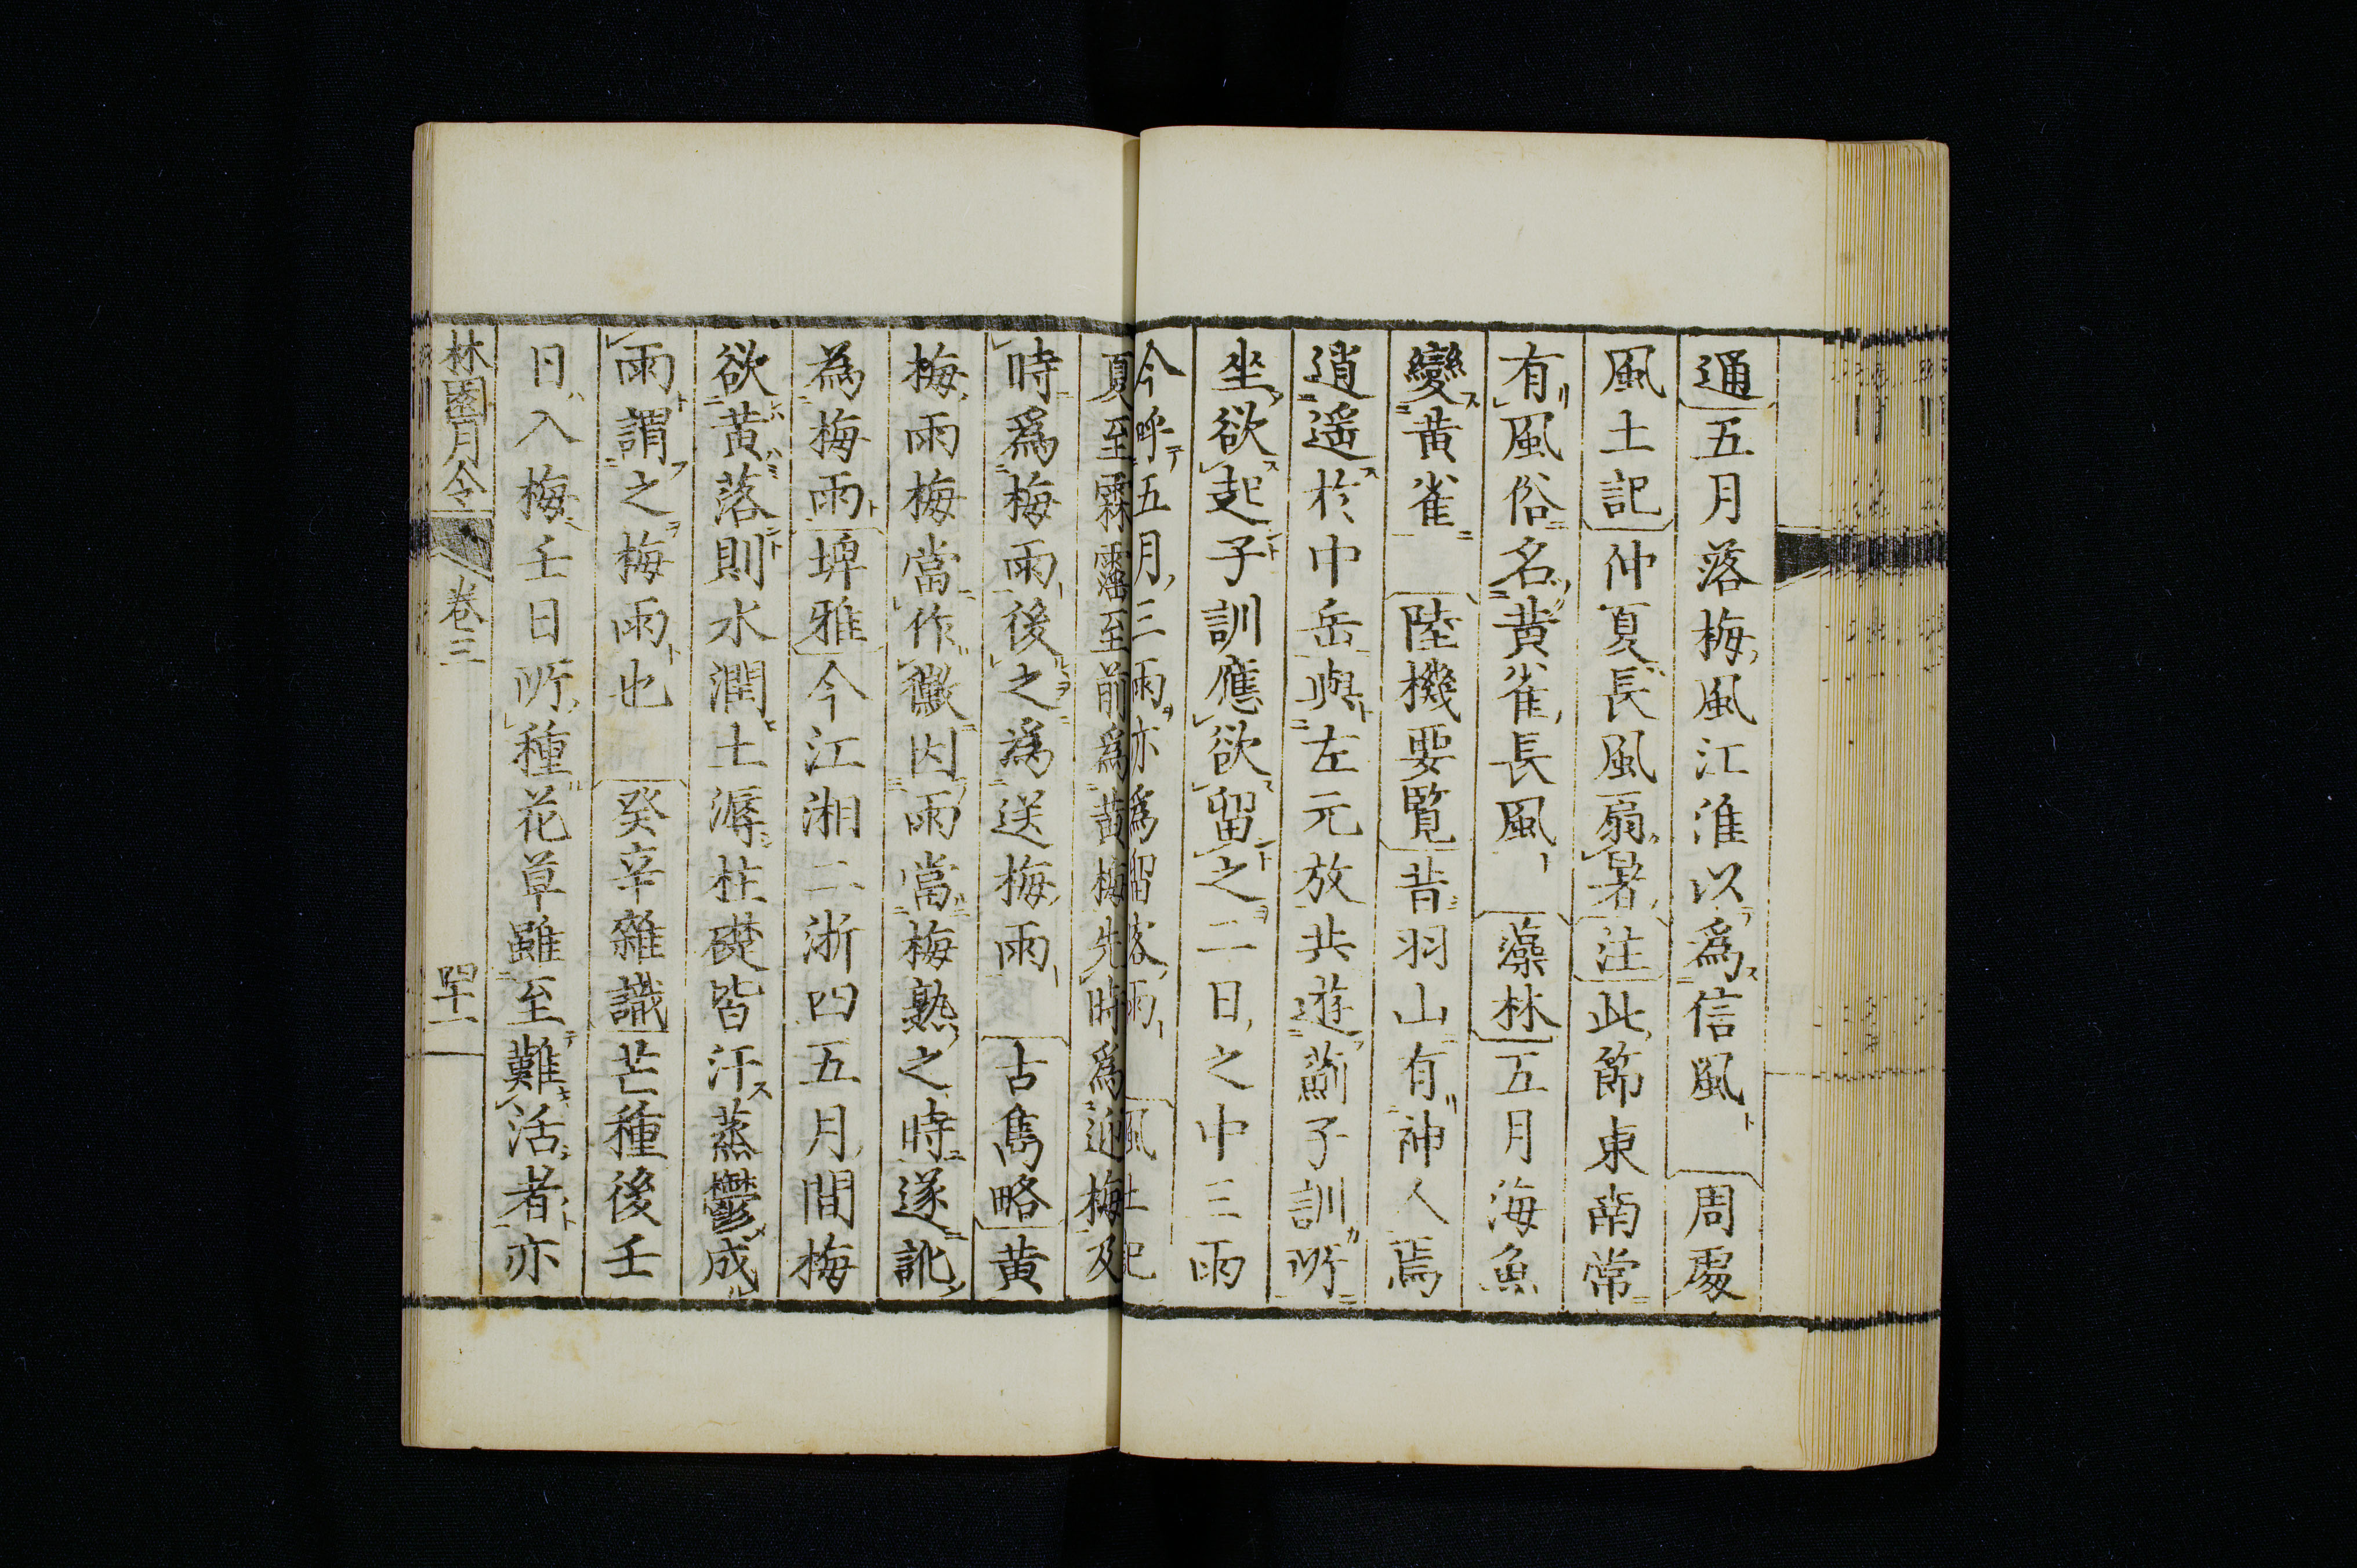 通五月落梅風江淮以爲信風周處
風土記仲夏長風扇暑注此節東南常
有風俗名黃雀長風藻林五月海魚
變黃雀陸機要覽昔羽山有神人焉
逍遙於中岳與左元放共遊薊子訓所
坐欲起子訓應欲留之二日之中三雨
今呼五月三雨亦爲留客雨風土記
夏至霖霪至前爲黃梅先時爲迎梅及
時爲梅雨後之爲送梅雨古雋略黃
梅雨梅當作黴因雨當梅熟之時遂訛
為梅雨埤雅今江湘二浙四五月間梅
欲黃落則水潤土溽柱礎皆汗蒸鬱成
雨謂之梅雨也癸辛雜識芒種後壬
日入梅壬日所種花草雖至難活者亦
林園月令 卷三 四十一